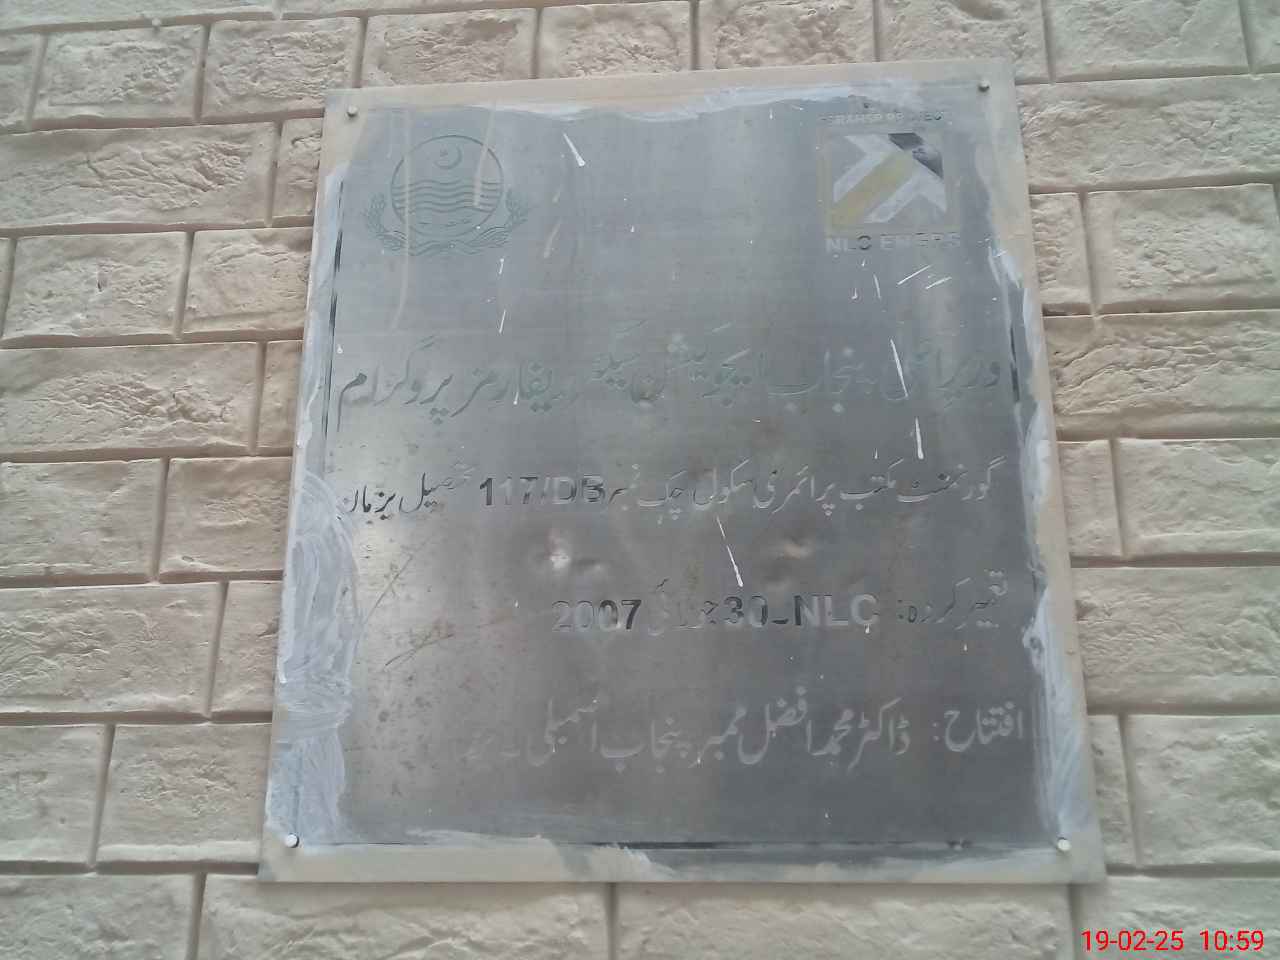 NLC ENGRS
وزیراعلیٰ پنجاب ایجوکیشن سیکٹر ریفارمز پروگرام
گورنمنٹ مکتب پرائمری سکول چک نمبر 117/DB تحصیل یزمان
تعمیر کردہ: NLC ۔ 30 جولائی 2007
افتتاح: ڈاکٹر محمد افضل ممبر پنجاب اسمبلی ۔
19-02-25 10:59